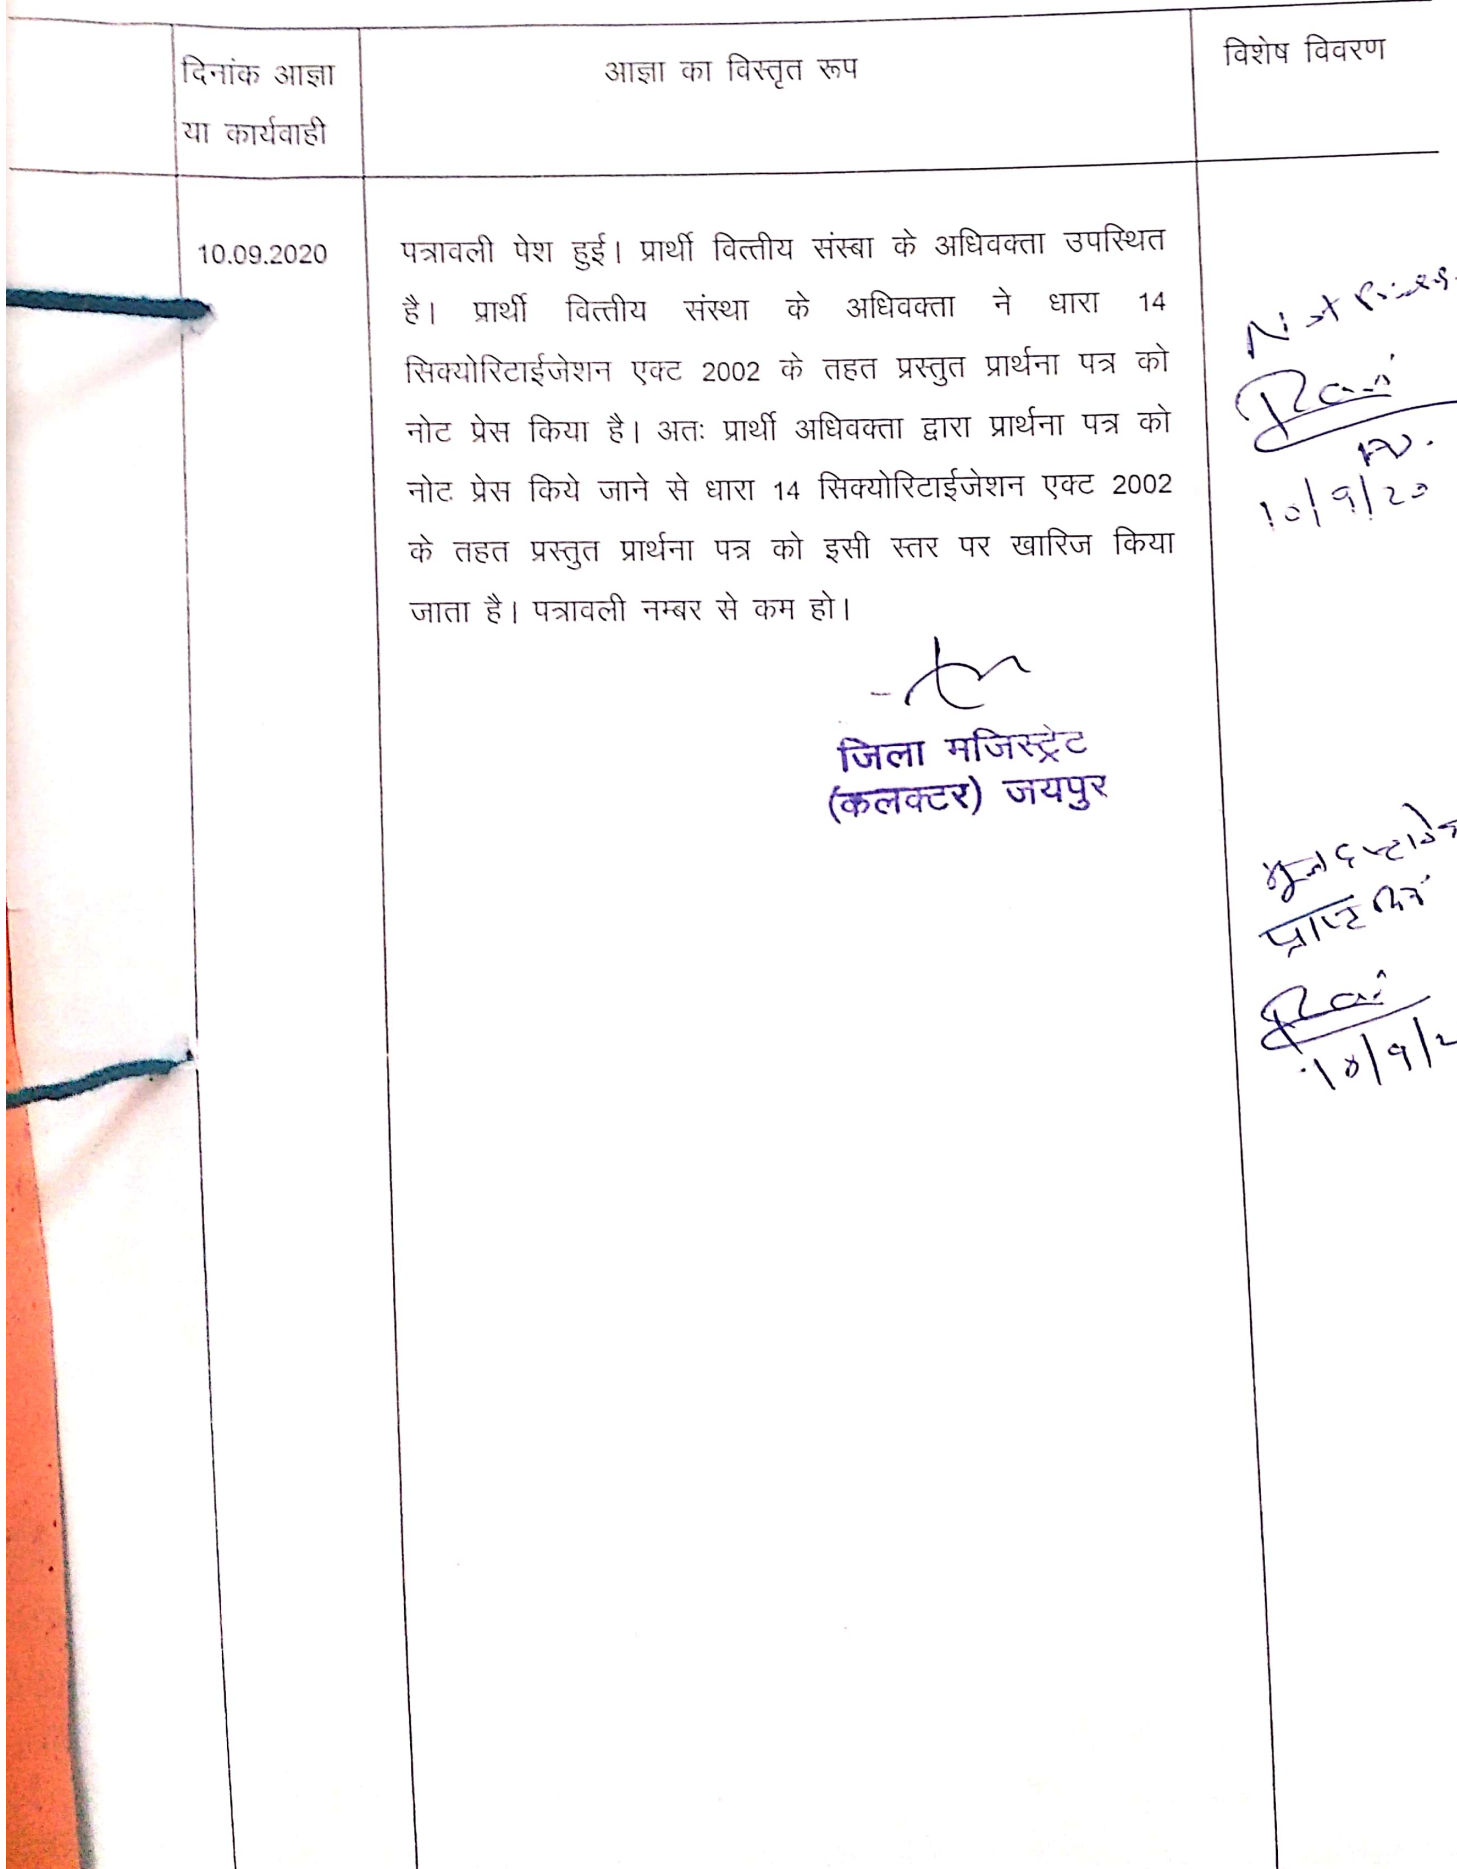 दिनांक आज्ञा
या कार्यवाही
आज्ञा का विस्तृत रूप
विशेष विवरण
10.09.2020
पत्रावली पेश हुई। प्रार्थी वित्तीय संस्बा के अधिवक्ता उपस्थित
है। प्रार्थी वित्तीय संस्था के अधिवक्ता ने धारा 14
सिक्योरिटाईजेशन एक्ट 2002 के तहत प्रस्तुत प्रार्थना पत्र को
नोट प्रेस किया है। अतः प्रार्थी अधिवक्ता द्वारा प्रार्थना पत्र को
नोट प्रेस किये जाने से धारा 14 सिक्योरिटाईजेशन एक्ट 2002
के तहत प्रस्तुत प्रार्थना पत्र को इसी स्तर पर खारिज किया
जाता है। पत्रावली नम्बर से कम हो।
जिला मजिस्ट्रेट
(कलक्टर) जयपुर
Not Press
Ravi
10/9/20
प्राप्त किये
Ravi
10/9/2